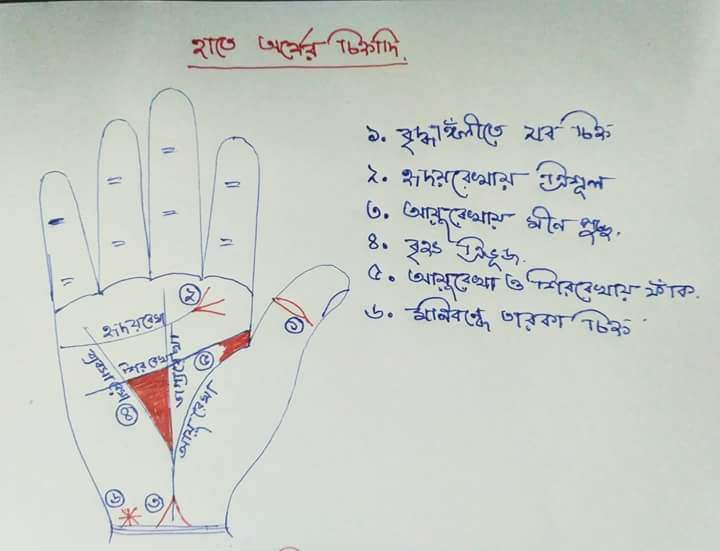 হাতে অর্থের চিহ্নাদি.
১. বৃদ্ধাঙ্গুলীতে যব চিহ্ন
২. হৃদয়রেখায় ত্রিশূল
৩. আয়ুরেখায় মীন পুচ্ছ.
৪. বৃহৎ ত্রিভূজ.
৫. আয়ুরেখা ও শিররেখায় ফাঁক.
৬. মনিবন্ধে তারকা চিহ্ন
২
হৃদয়রেখা
১
শির রেখা
৫
ভাগ্যরেখা
ব্যবসা রেখা
৪
আয়ু রেখা
৬
৩